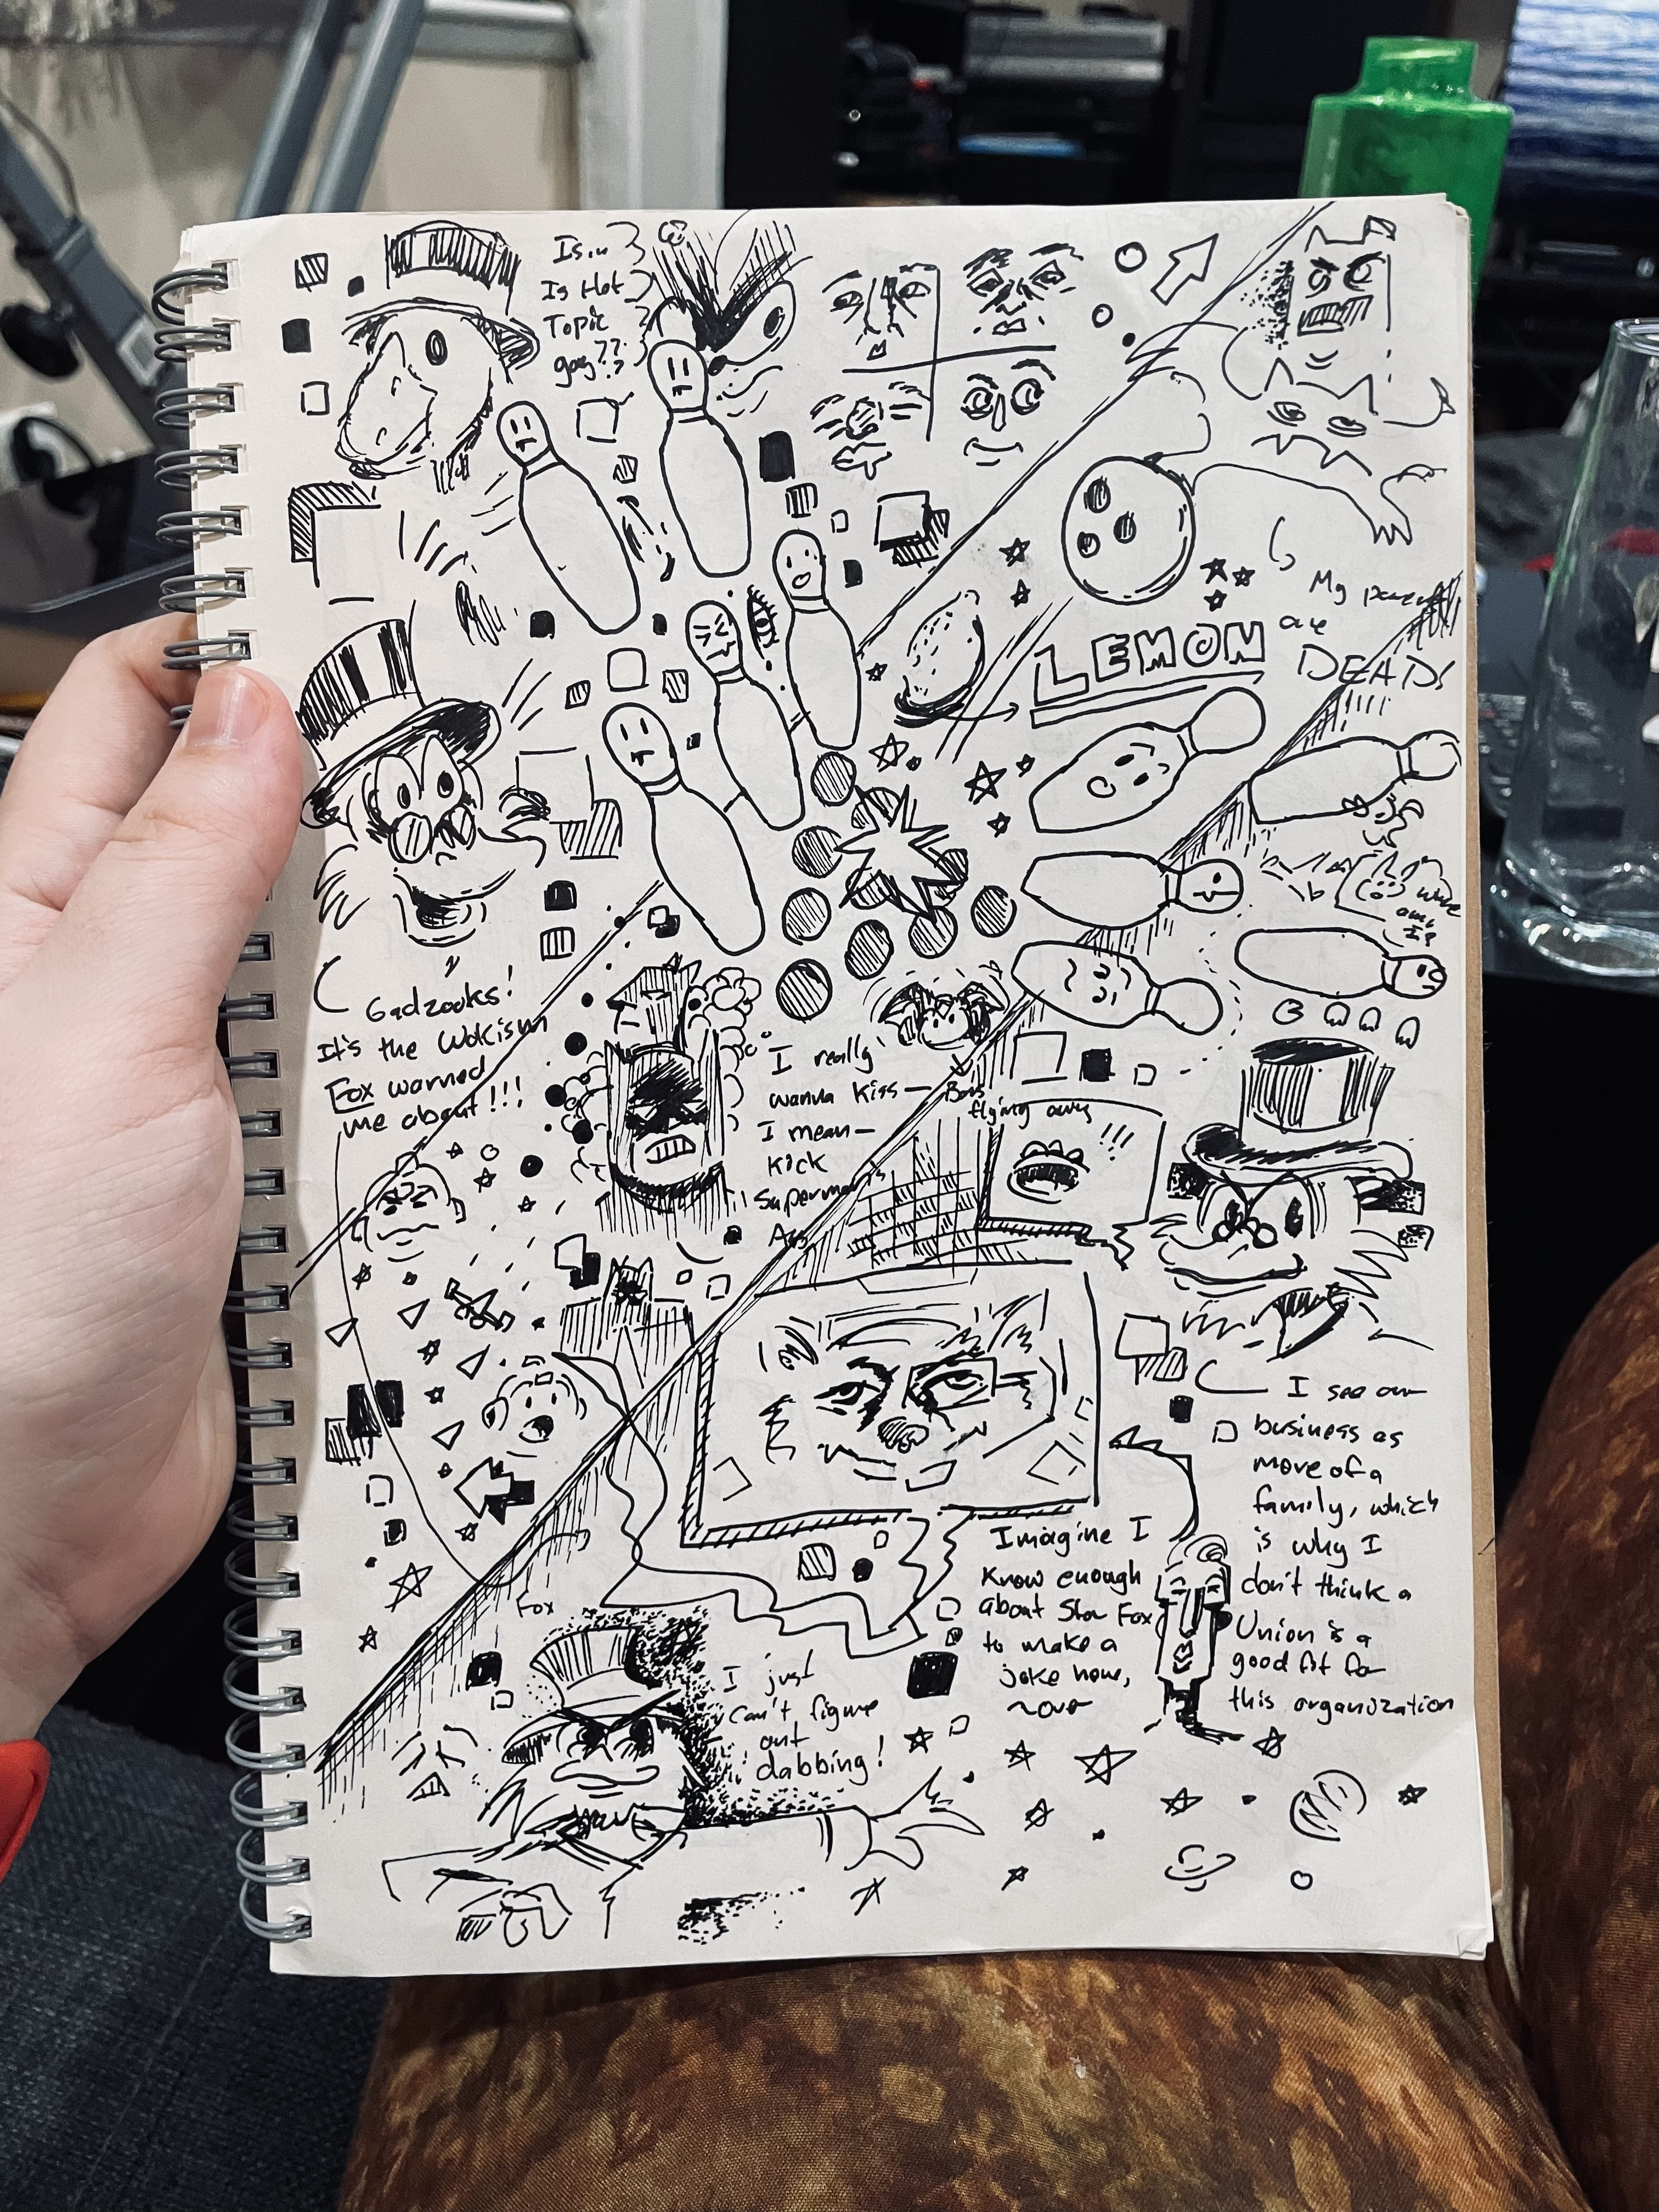 Is..
Is Hot
Topic
gay??
My
are
DEAD!
LEMON
where
am
I?
Gadzooks!
It's the Wokism
Fox warned
me about!!!
I really
wanna kiss—
I mean—
kick
Superman's
Ass
Bats
flying away
!!!
I see our
business as
more of a
family, which
is why I
don't think a
Union is a
good fit for
this organization
Imagine I
know enough
about Star Fox
to make a
joke here,
Fox
I just
can't figure
out
dabbing!